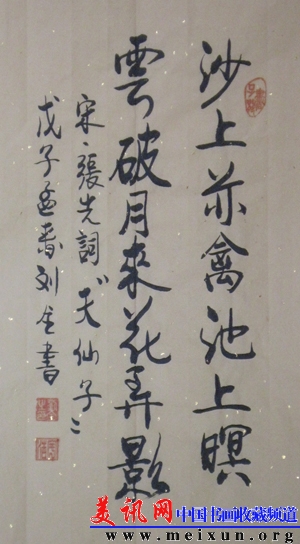 沙上並禽池上暝
雲破月来花弄影
宋、張先詞《天仙子》
戊子孟春刘金書
美讯网 中国书画收藏频道
www.meixun.org